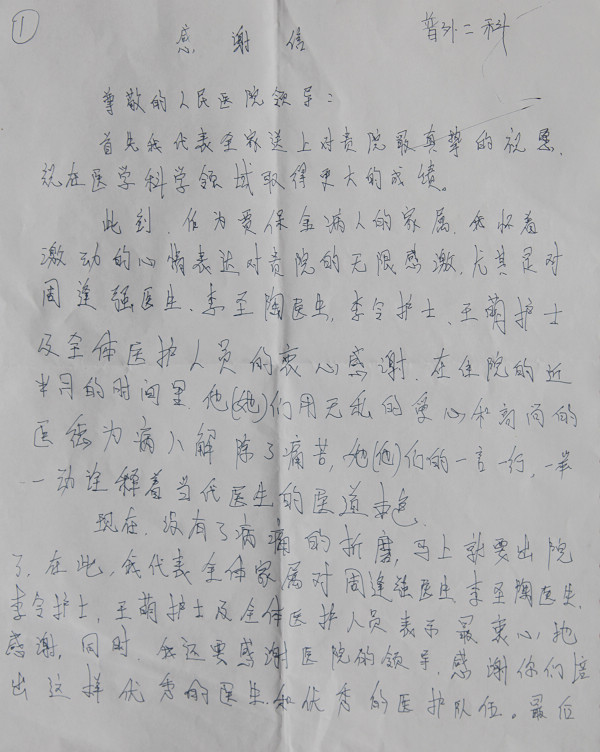 ①
普外二科
感谢信
尊敬的人民医院领导:
首先我代表全家送上对贵院最真挚的祝愿.
祝在医学科学领域取得更大的成绩。
此刻.作为贾保金病人的家属.我怀着
激动的心情表达对贵院的无限感激.尤其是对
周逢强医生.李至陶医生.李令护士.王萌护士
及全体医护人员的衷心感谢.在住院的近
半月的时间里.他(她)们用无私的爱心和高尚的
医德为病人解除了痛苦,她(他)们的一言一行,一举
一动诠释着当代医生的医道本色.
现在.没有了病痛的折磨,马上就要出院
了.在此.我代表全体家属对周逢强医生.李至陶医生.
李令护士.王萌护士及全体医护人员表示最衷心地
感谢.同时.我还要感谢医院的领导.感谢你们培
出这样优秀的医生.和优秀的医护队伍。最后